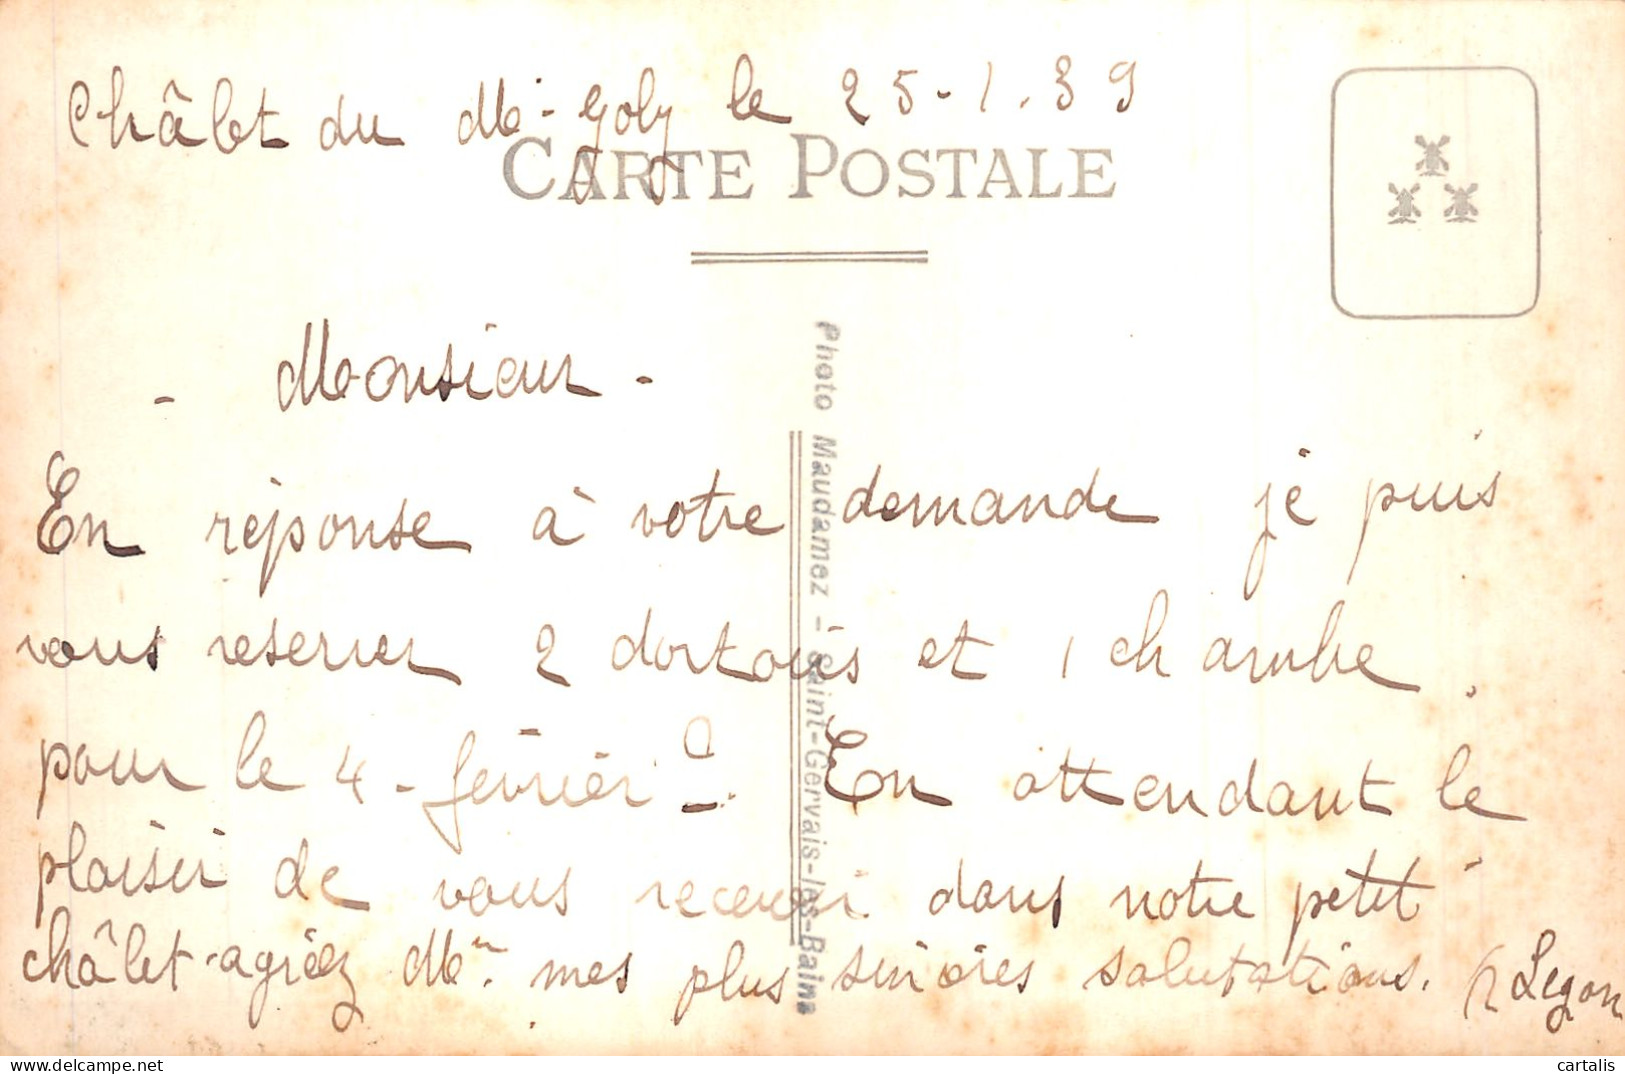 Châlet du Mt-Joly le 25-1.39
CARTE POSTALE
- Monsieur -
En réponse à votre demande je puis
vous reserver 2 dortoirs et 1 chambre
pour le 4-février. En attendant le
plaisir de vous recevoir dans notre petit
châlet-agréez Mr. mes plus sincères salutations.
Photo Maudamez - Saint-Gervais-les-Bains
cartalis